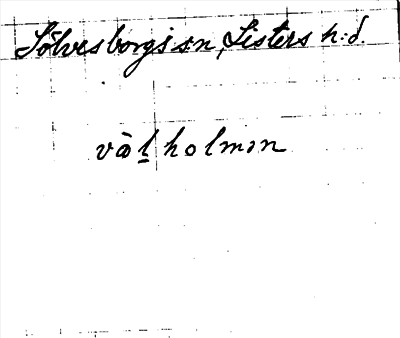 Sölvesborgs sn, Listers h:d.
vàl̠holmən